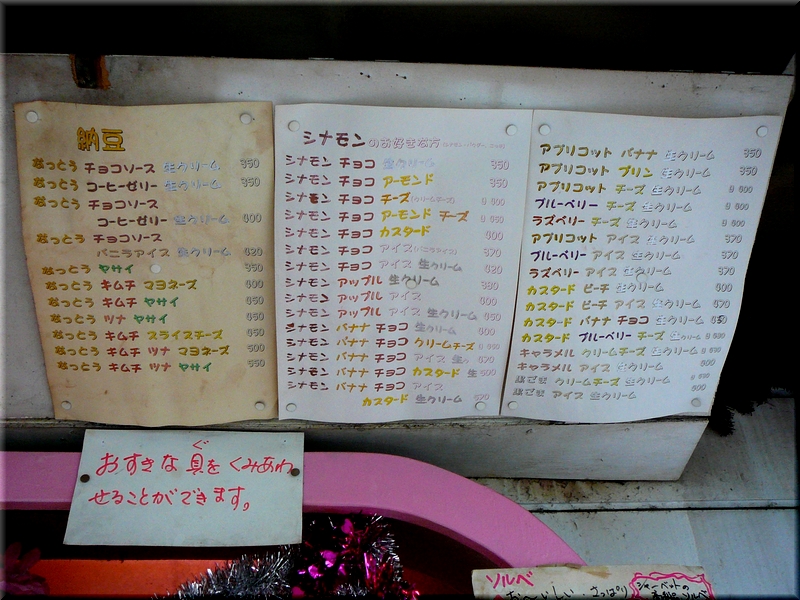 納豆
なっとう チョコソース 生クリーム 350
なっとう コーヒーゼリー 生クリーム 350
なっとう チョコソース
コーヒーゼリー 生クリーム 400
なっとう チョコソース
バニラアイス 生クリーム 420
なっとう ヤサイ 350
なっとう キムチ マヨネーズ 400
なっとう キムチ ヤサイ 450
なっとう ツナ ヤサイ 450
なっとう キムチ スライスチーズ 450
なっとう キムチ ツナ マヨネーズ 500
なっとう キムチ ツナ ヤサイ 550
シナモンのお好きな方
シナモン チョコ 生クリーム 350
シナモン チョコ アーモンド 350
シナモン チョコ チーズ(クリームチーズ) 400
シナモン チョコ アーモンド チーズ
シナモン チョコ カスタード 400
シナモン チョコ アイス(バニラアイス) 370
シナモン チョコ アイス 生クリーム 420
シナモン アップル 生クリーム
シナモン アップル アイス 400
シナモン アップル アイス 生クリーム
シナモン バナナ チョコ 生クリーム 400
シナモン バナナ チョコ クリームチーズ
シナモン バナナ チョコ アイス 生 470
シナモン バナナ チョコ カスタード 生
シナモン バナナ チョコ アイス
カスタード 生クリーム 520
アプリコット バナナ 生クリーム 350
アプリコット プリン 生クリーム 350
アプリコット チーズ 生クリーム 400
ブルーベリー チーズ 生クリーム 400
ラズベリー チーズ 生クリーム 400
アプリコット アイス 生クリーム 370
ブルーベリー アイス 生クリーム 370
ラズベリー アイス 生クリーム 370
カスタード ピーチ 生クリーム 400
カスタード ピーチ アイス 生クリーム 470
カスタード バナナ チョコ 生クリーム 450
カスタード ブルーベリー チーズ 生クリーム
キャラメル クリームチーズ 生クリーム
キャラメル アイス 生クリーム 400
黒ごま クリームチーズ 生クリーム
黒ごま アイス 生クリーム 400
おすきな具をくみあわ
ぐ
せることができます。
ソルベ
おいしい さっぱり
シャーベットの